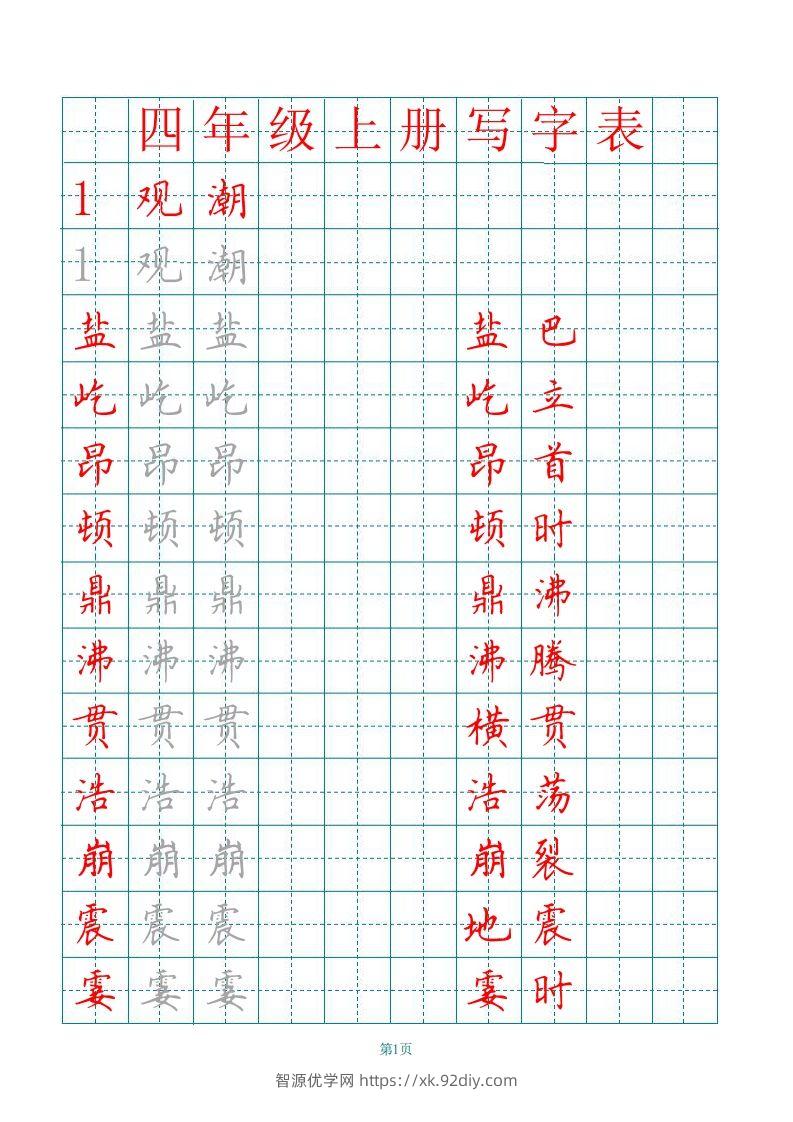 四年级上册写字表
1 观 潮
1 观 潮
盐 盐 盐 盐 巴
屹 屹 屹 屹 立
昂 昂 昂 昂 首
顿 顿 顿 顿 时
鼎 鼎 鼎 鼎 沸
沸 沸 沸 沸 腾
贯 贯 贯 横 贯
浩 浩 浩 浩 荡
崩 崩 崩 崩 裂
震 震 震 地 震
霎 霎 霎 霎 时
第1页
智源优学网 https://xk.92diy.com